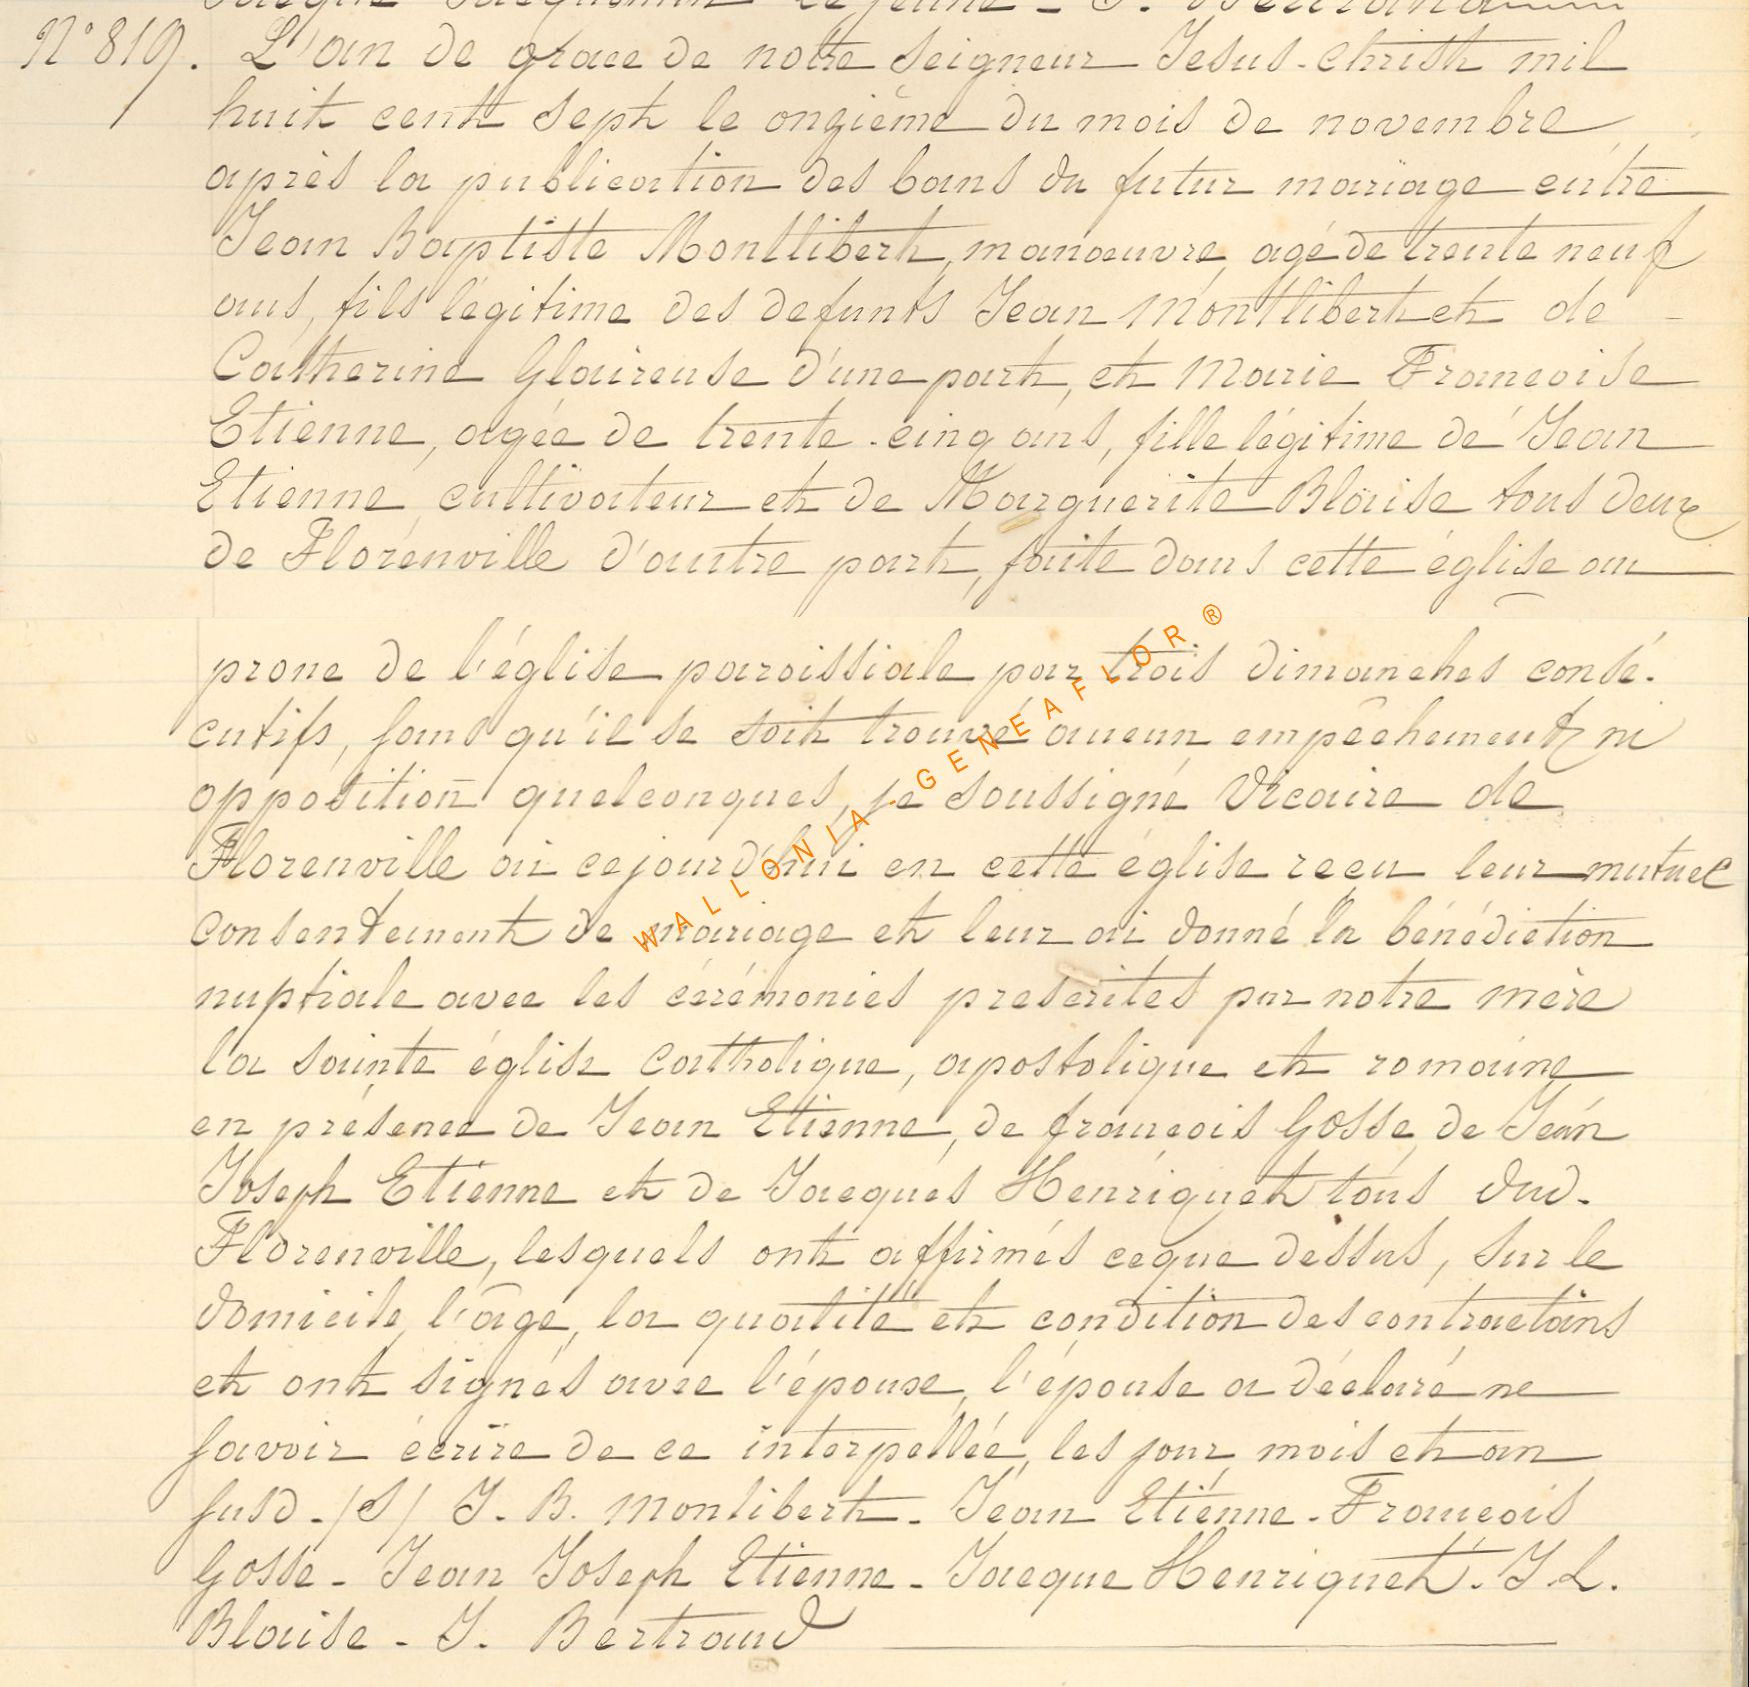 N° 819. L'an de grace de notre seigneur Jesus-christ mil
huit cent sept le onzième du mois de novembre
après la publication des bans du futur mariage entre
Jean Baptiste Montlibert, manœuvre, agé de trente neuf
ans, fils légitime des defunts Jean Montlibert et de
Catherine Glaireuse d'une part, et Marie Francoise
Etienne, agée de trente-cinq ans, fille légitime de Jean
Etienne cultivateur et de Marguerite Blaise tous deux
de Florenville d'autre part, faite dans cette église au
prone de l'église paroissiale par trois dimanches consé-
cutifs, sans qu'il se soit trouvé aucun empêchement ni
opposition quelconques, je soussigné Vicaire de
Florenville ai cejourd'hui en cette église recu leur mutuel
consentement de mariage et leur ai donné la bénédiction
nuptiale avec les cérémonies prescrites par notre mère
la sainte église catholique, apostolique et romaine
en présence de Jean Etienne, de francois Gosse, de Jean
Joseph Etienne et de Jacques Henriquet tous dud.
Florenville, lesquels ont affirmés ceque dessus, sur le
domicile, l'âge, la qualité et condition des contractans
et ont signés avec l'épouse, l'épouse a déclaré ne
savoir écrire de ce interpellée, les jour, mois et an
susd. /S/ J. B. Monlibert - Jean Etienne - Francois
Gosse - Jean Joseph Etienne - Jacque Henriquet. J. L.
Blaise - J. Bertrand
WALLONIA-GENEAFLOR®